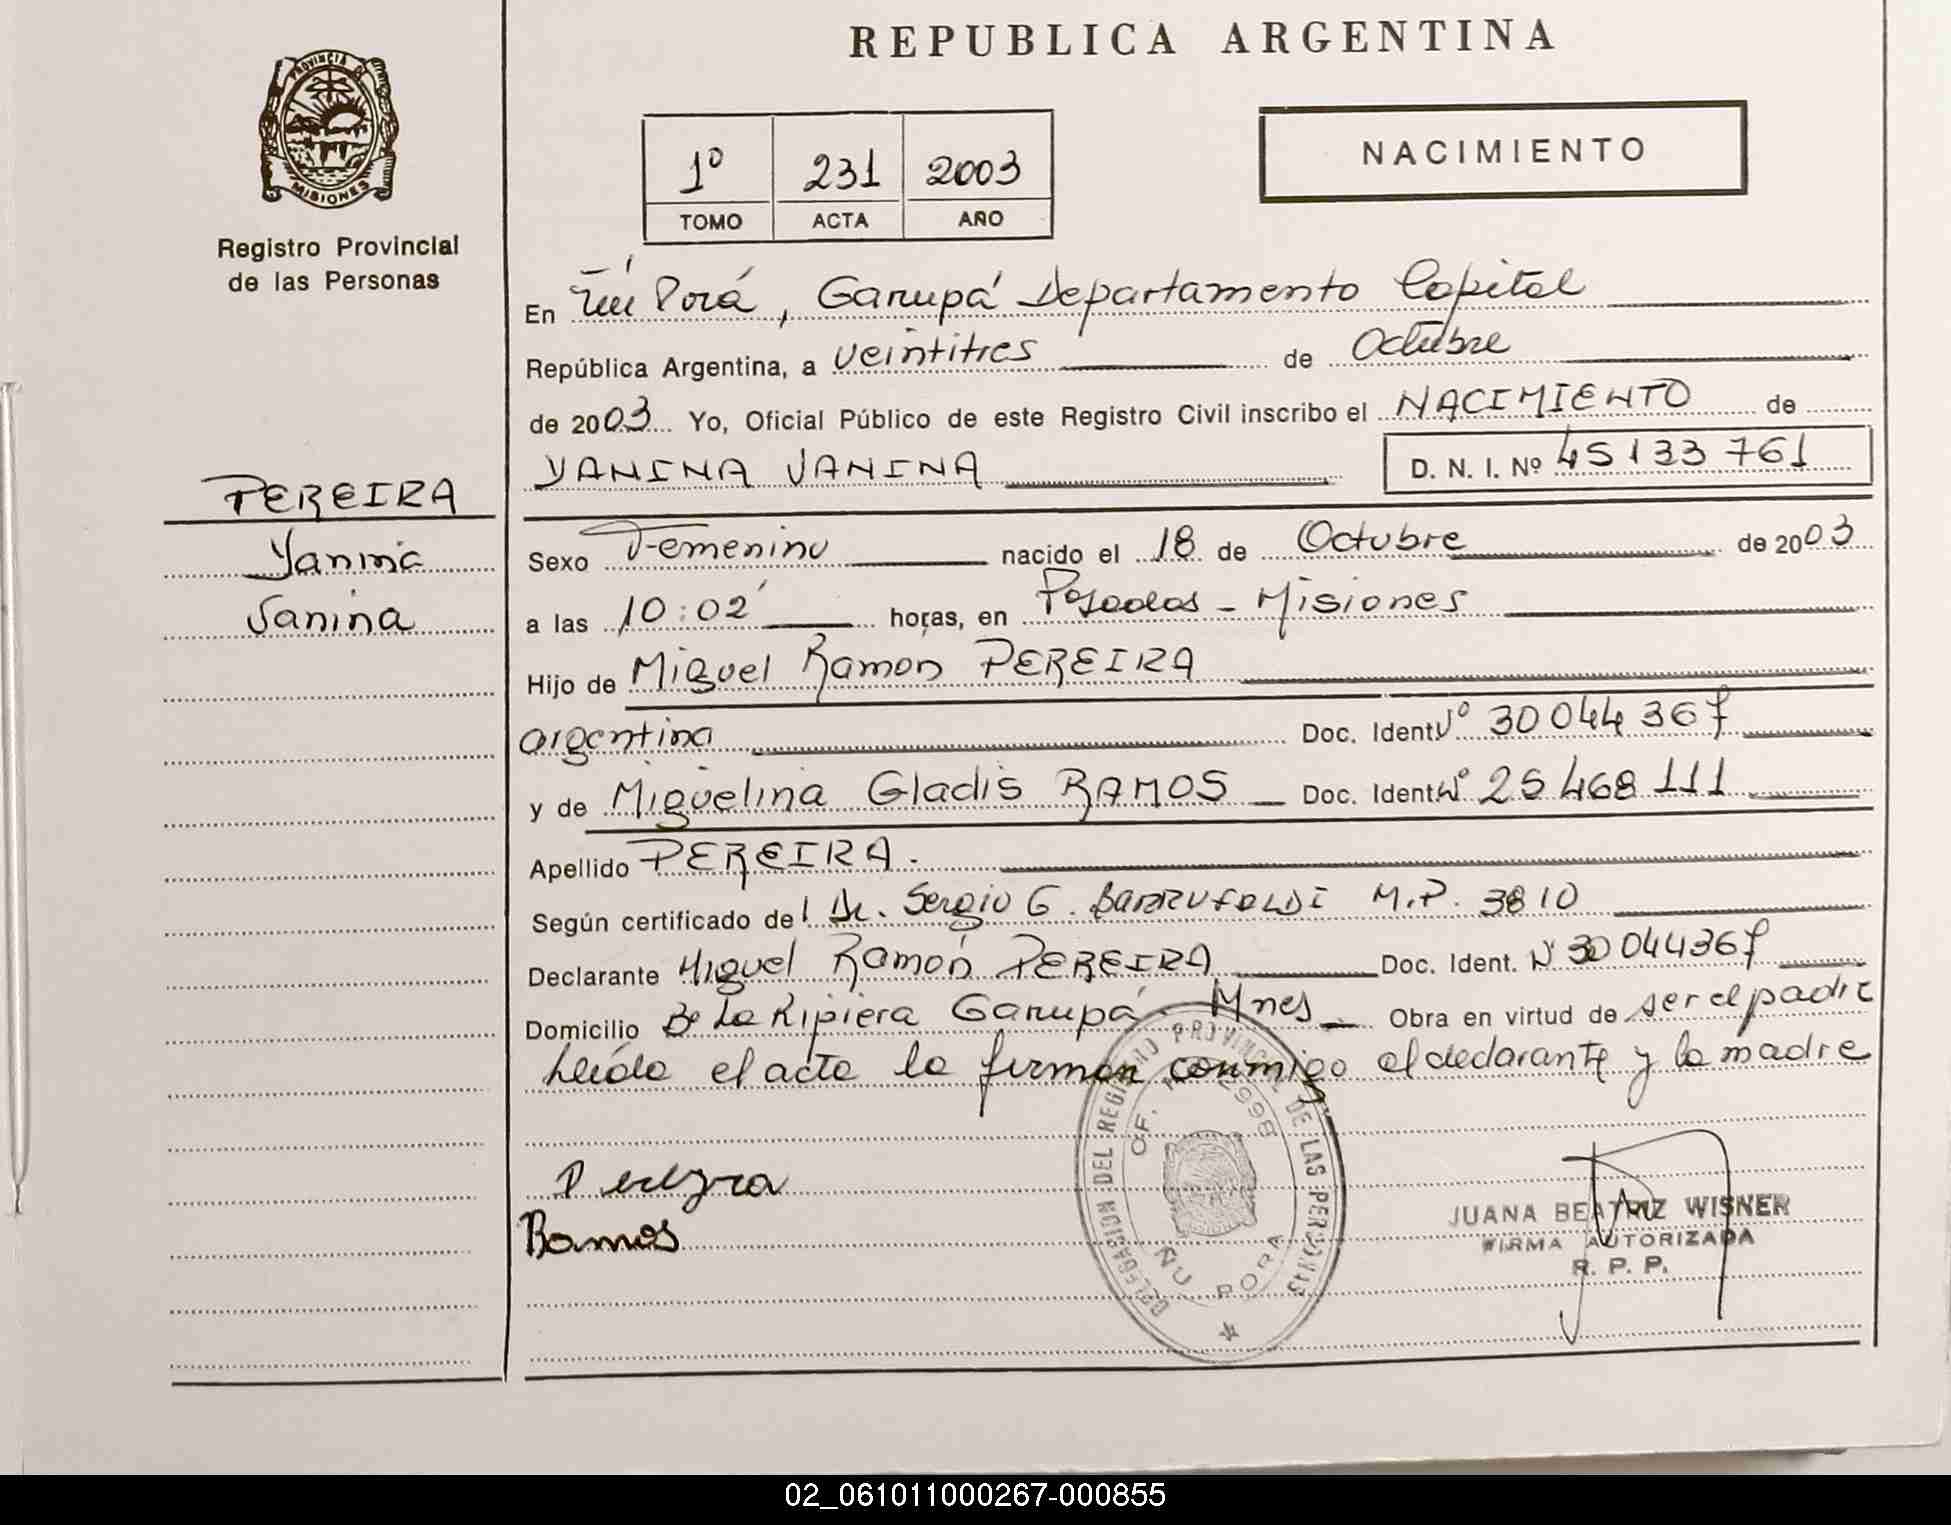 REPUBLICA ARGENTINA
PROVINCIA DE
MISIONES
Registro Provincial
de las Personas
1º 231 2003
TOMO ACTA AÑO
NACIMIENTO
En Ñu Porá, Garupá Departamento Capital
República Argentina, a veintitres de Octubre
de 2003 Yo, Oficial Público de este Registro Civil inscribo el NACIMIENTO de
YANINA JANINA D. N. I. Nº 45133761
PEREIRA
Yanina
Janina
Sexo Femenino nacido el 18 de Octubre de 2003
a las 10:02' horas, en Posadas - Misiones
Hijo de Miguel Ramon PEREIRA
argentina Doc. Ident Nº 30044367
y de Miguelina Gladis RAMOS Doc. Ident Nº 25468111
Apellido PEREIRA.
Según certificado del Dr. Sergio G. BARRUFALDI M.P. 3810
Declarante Miguel Ramón PEREIRA Doc. Ident. Nº 30044367
Domicilio Bº La Ripiera Garupá - Mnes Obra en virtud de ser el padre
Leída el acta la firman conmigo el declarante y la madre
DELEGACION DEL REGISTRO PROVINCIAL DE LAS PERSONAS
OF. 2998
ÑU PORA
Pereyra
Ramos
JUANA BEATRIZ WISNER
FIRMA AUTORIZADA
R. P. P.
02_061011000267-000855